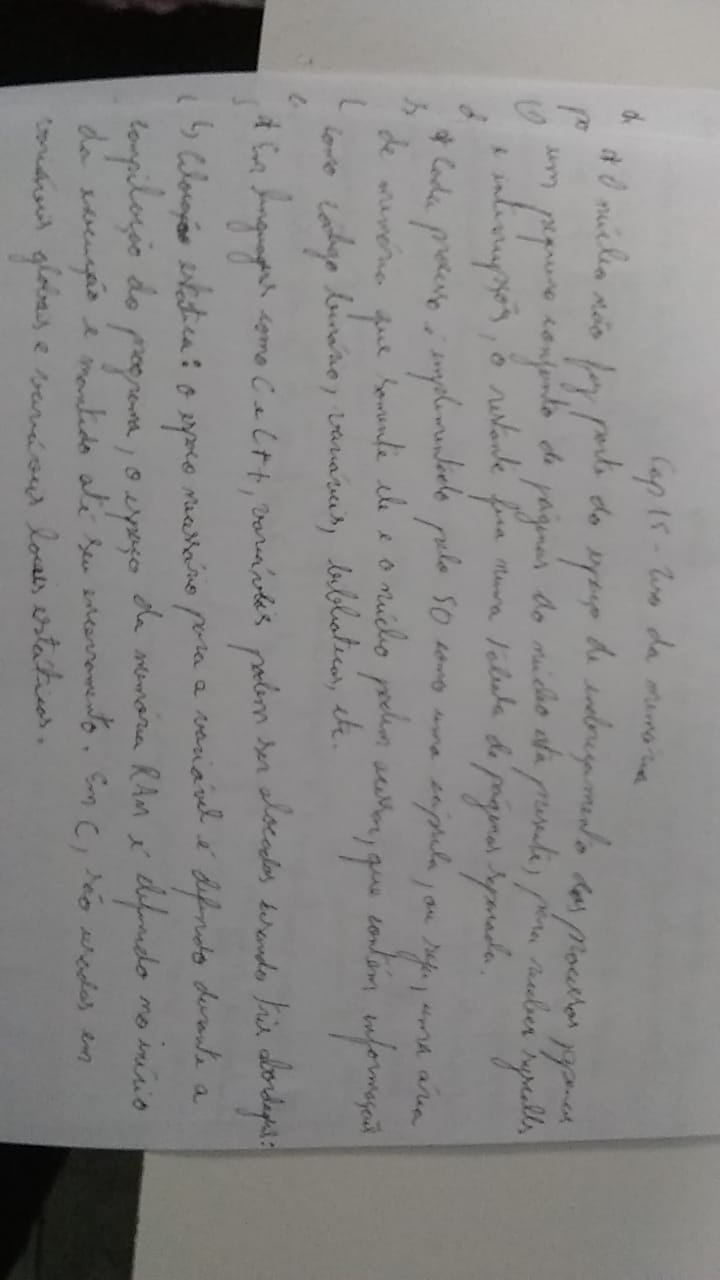 Cap 15 - Uso da memória
* O núcleo não faz parte do espaço de endereçamento dos processos, apenas
um pequeno conjunto de páginas do núcleo está presente, para receber syscalls
e interrupções, o restante fica numa tabela de páginas separada.
* Cada processo é implementado pelo SO como uma cápsula, ou seja, uma área
de memória que somente ele e o núcleo podem acessar, que contém informações
como código binário, variáveis, bibliotecas, etc.
* Em linguagens como C e C++, variáveis podem ser alocadas usando três abordagens:
↳ Alocação estática: o espaço necessário para a variável é definido durante a
compilação do programa, o espaço da memória RAM é definido no início
da execução e mantido até seu encerramento. Em C, são usadas em
variáveis globais e variáveis locais estáticas.